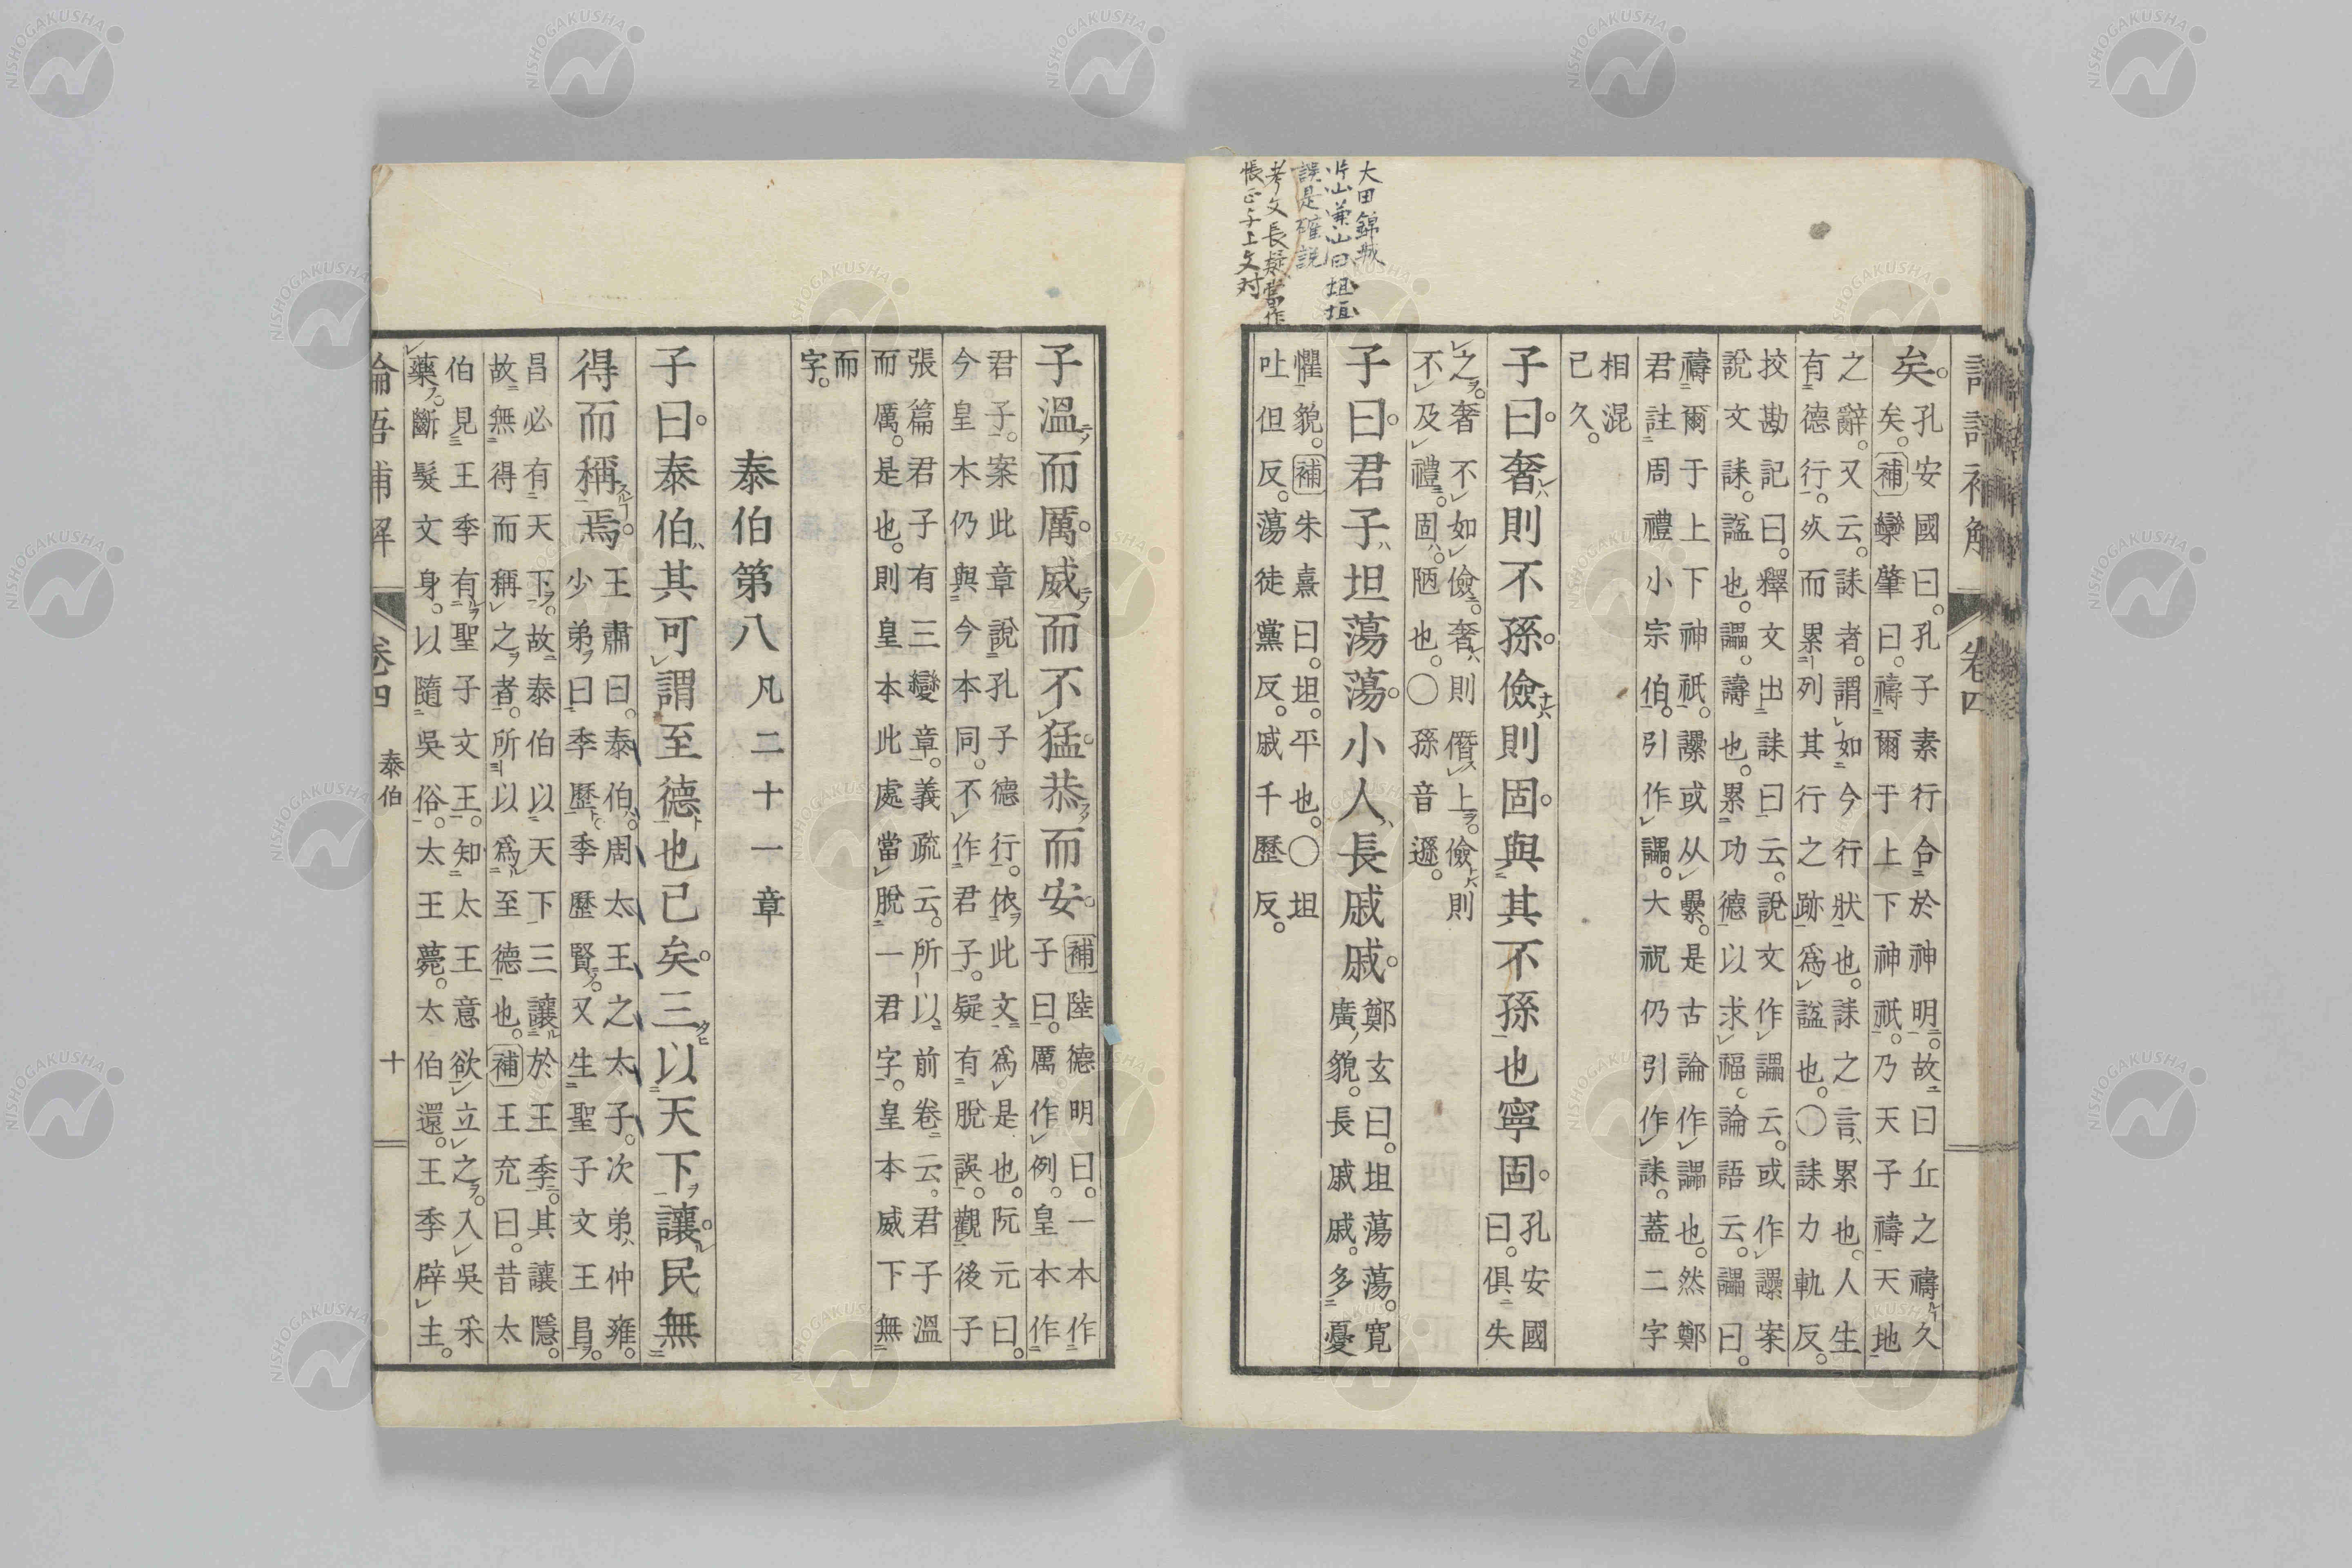 大田錦城
片山兼山曰坦垣
誤是確説
考文長疑當作
悵正与上文対
矣。
孔安國曰。孔子素行合於神明。故曰丘之禱久
矣。補欒肇曰。禱爾于上下神祇。乃天子禱天地
之辭。又云。誄者。謂如今行狀也。誄之言。累也。人生
有德行。死而累列其行之跡爲謚也。〇誄力軌反。
挍勘記曰。釋文出誄曰云。說文作讄云。或作𧮢案
說文誄。謚也。讄。禱也。累功德以求福。論語云。讄曰。
禱爾于上下神祇。𧮢或从纍。是古論作讄也。然鄭
君註周禮小宗伯。引作讄。大祝仍引作誄。蓋二字
相混
已久。
子曰。奢則不孫。儉則固。與其不孫也寧固。
孔安國
曰。俱失
之。奢不如儉。奢則僭上。儉則
不及禮。固。陋也。〇孫音遜。
子曰。君子坦蕩蕩。小人長戚戚。
鄭玄曰。坦蕩蕩。寬
廣貌。長戚戚。多憂
懼貌。補朱熹曰。坦。平也。〇坦
吐但反。蕩徒黨反。戚千歷反。
卷四
子溫而厲。威而不猛。恭而安。
補陸德明曰。一本作
子曰。厲作例。皇本作
君子。案此章說孔子德行。依此文爲是也。阮元曰。
今皇本仍與今本同。不作君子。疑有脫誤。觀後子
張篇君子有三變章。義疏云。所以前卷云。君子溫
而厲。是也。則皇本此處當脫一君字。皇本威下無
而
字。
泰伯第八 凡二十一章
子曰。泰伯其可謂至德也已矣。三以天下讓。民無
得而稱焉。
王肅曰。泰伯。周太王之太子。次弟仲雍。
少弟曰季歷。季歷賢。又生聖子文王昌。
昌必有天下。故泰伯以天下三讓於王季。其讓隱。
故無得而稱之者。所以爲至德也。補王充曰。昔太
伯見王季有聖子文王。知太王意欲立之。入吳采
藥。斷髮文身。以隨吳俗。太王薨。太伯還。王季辟主。
論吾補解 卷四 泰伯 十